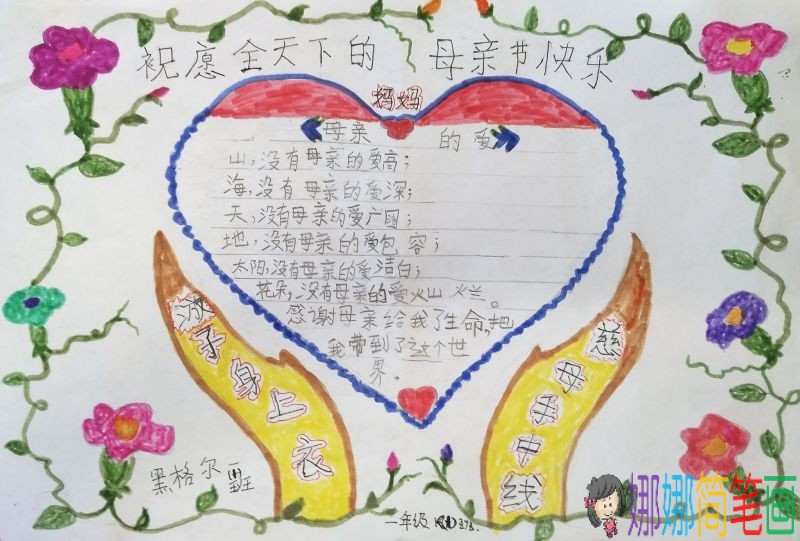 祝愿全天下的母亲节快乐
妈妈
《母亲的爱》
山,没有母亲的爱高;
海,没有母亲的爱深;
天,没有母亲的爱广阔;
地,没有母亲的爱包容;
太阳,没有母亲的爱洁白;
花朵,没有母亲的爱火山火兰。
感谢母亲给我了生命,把
我带到了这个世
界。
慈母手中线
游子身上衣
黑格尔
一年级
娜娜简笔画